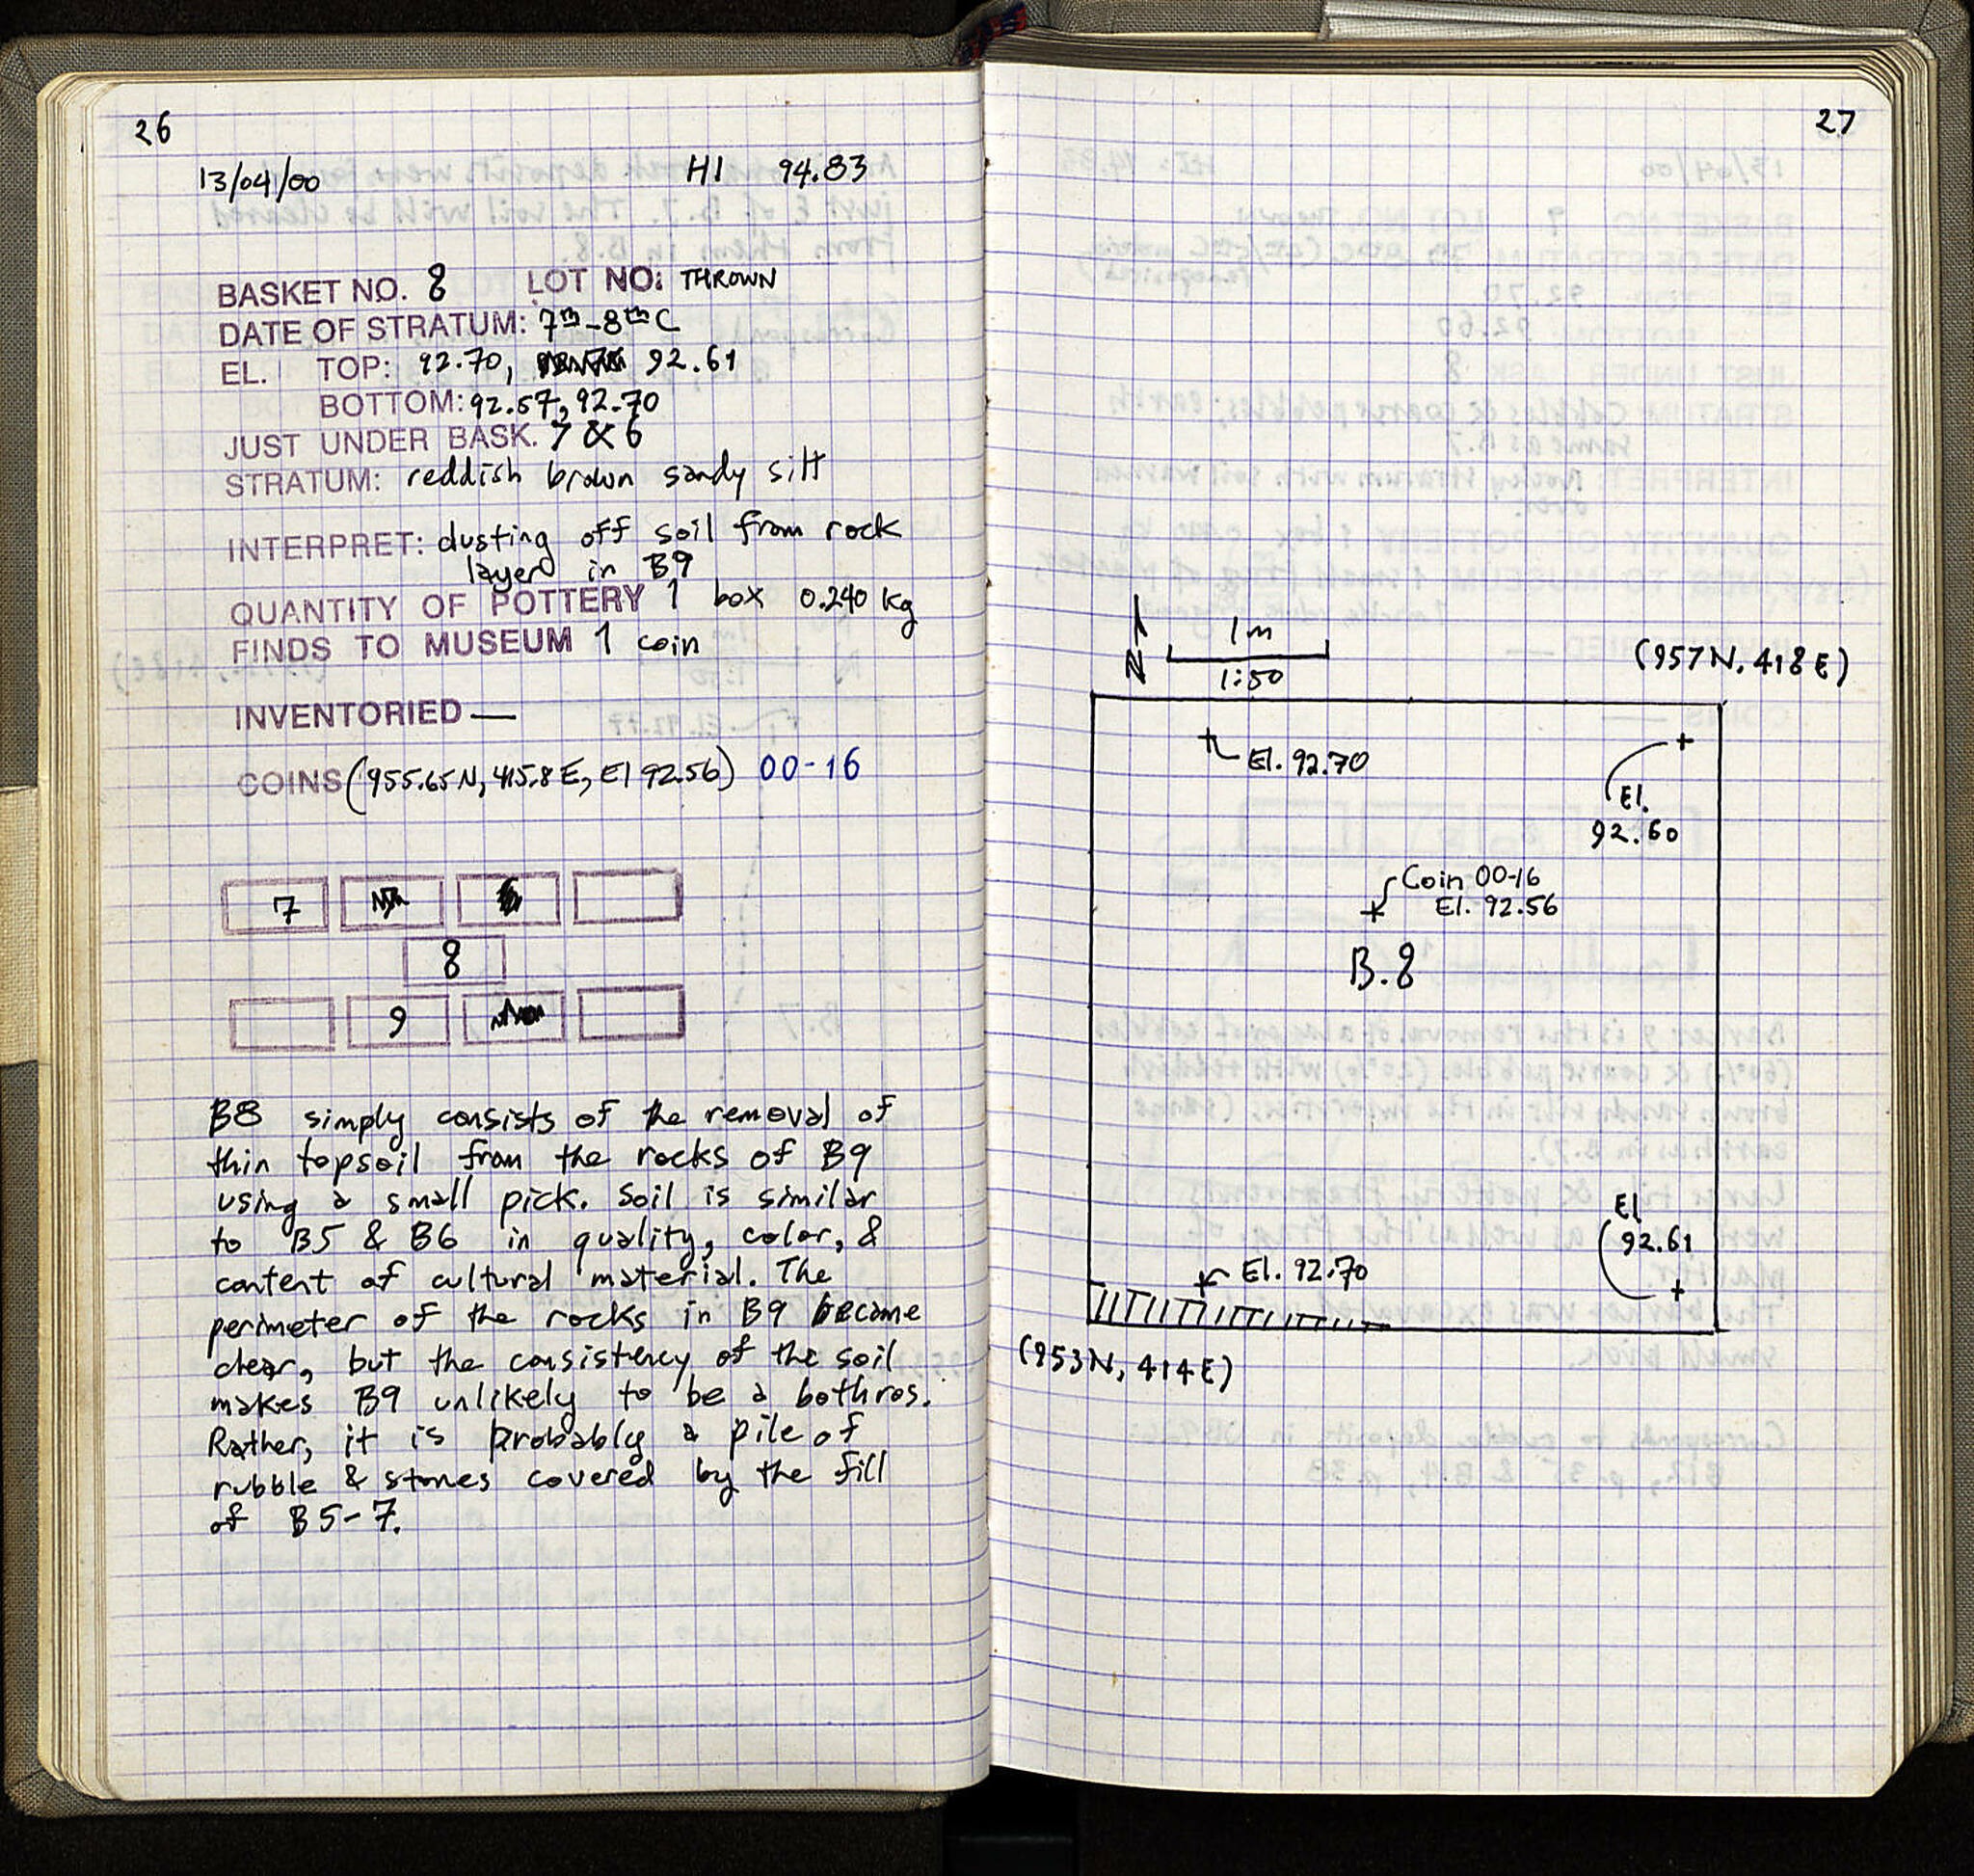 26
13/04/00 HI 94.83
BASKET NO. 8 LOT NO: THROWN
DATE OF STRATUM: 7th-8th C
EL. TOP: 92.70, 92.61
BOTTOM: 92.57, 92.70
JUST UNDER BASK. 7 & 6
STRATUM: reddish brown sandy silt
INTERPRET: dusting off soil from rock
layer in B9
QUANTITY OF POTTERY 1 box 0.240 kg
FINDS TO MUSEUM 1 coin
INVENTORIED —
COINS (955.65N, 415.8E, El 92.56) 00-16
7
8
9
B8 simply consists of the removal of
thin topsoil from the rocks of B9
using a small pick. Soil is similar
to B5 & B6 in quality, color, &
content of cultural material. The
perimeter of the rocks in B9 became
clear, but the consistency of the soil
makes B9 unlikely to be a bothros.
Rather, it is probably a pile of
rubble & stones covered by the fill
of B5-7.
27
N
1m
1:50
(957N, 418E)
El. 92.70
El.
92.60
Coin 00-16
El. 92.56
B.8
El
92.61
El. 92.70
(953N, 414E)